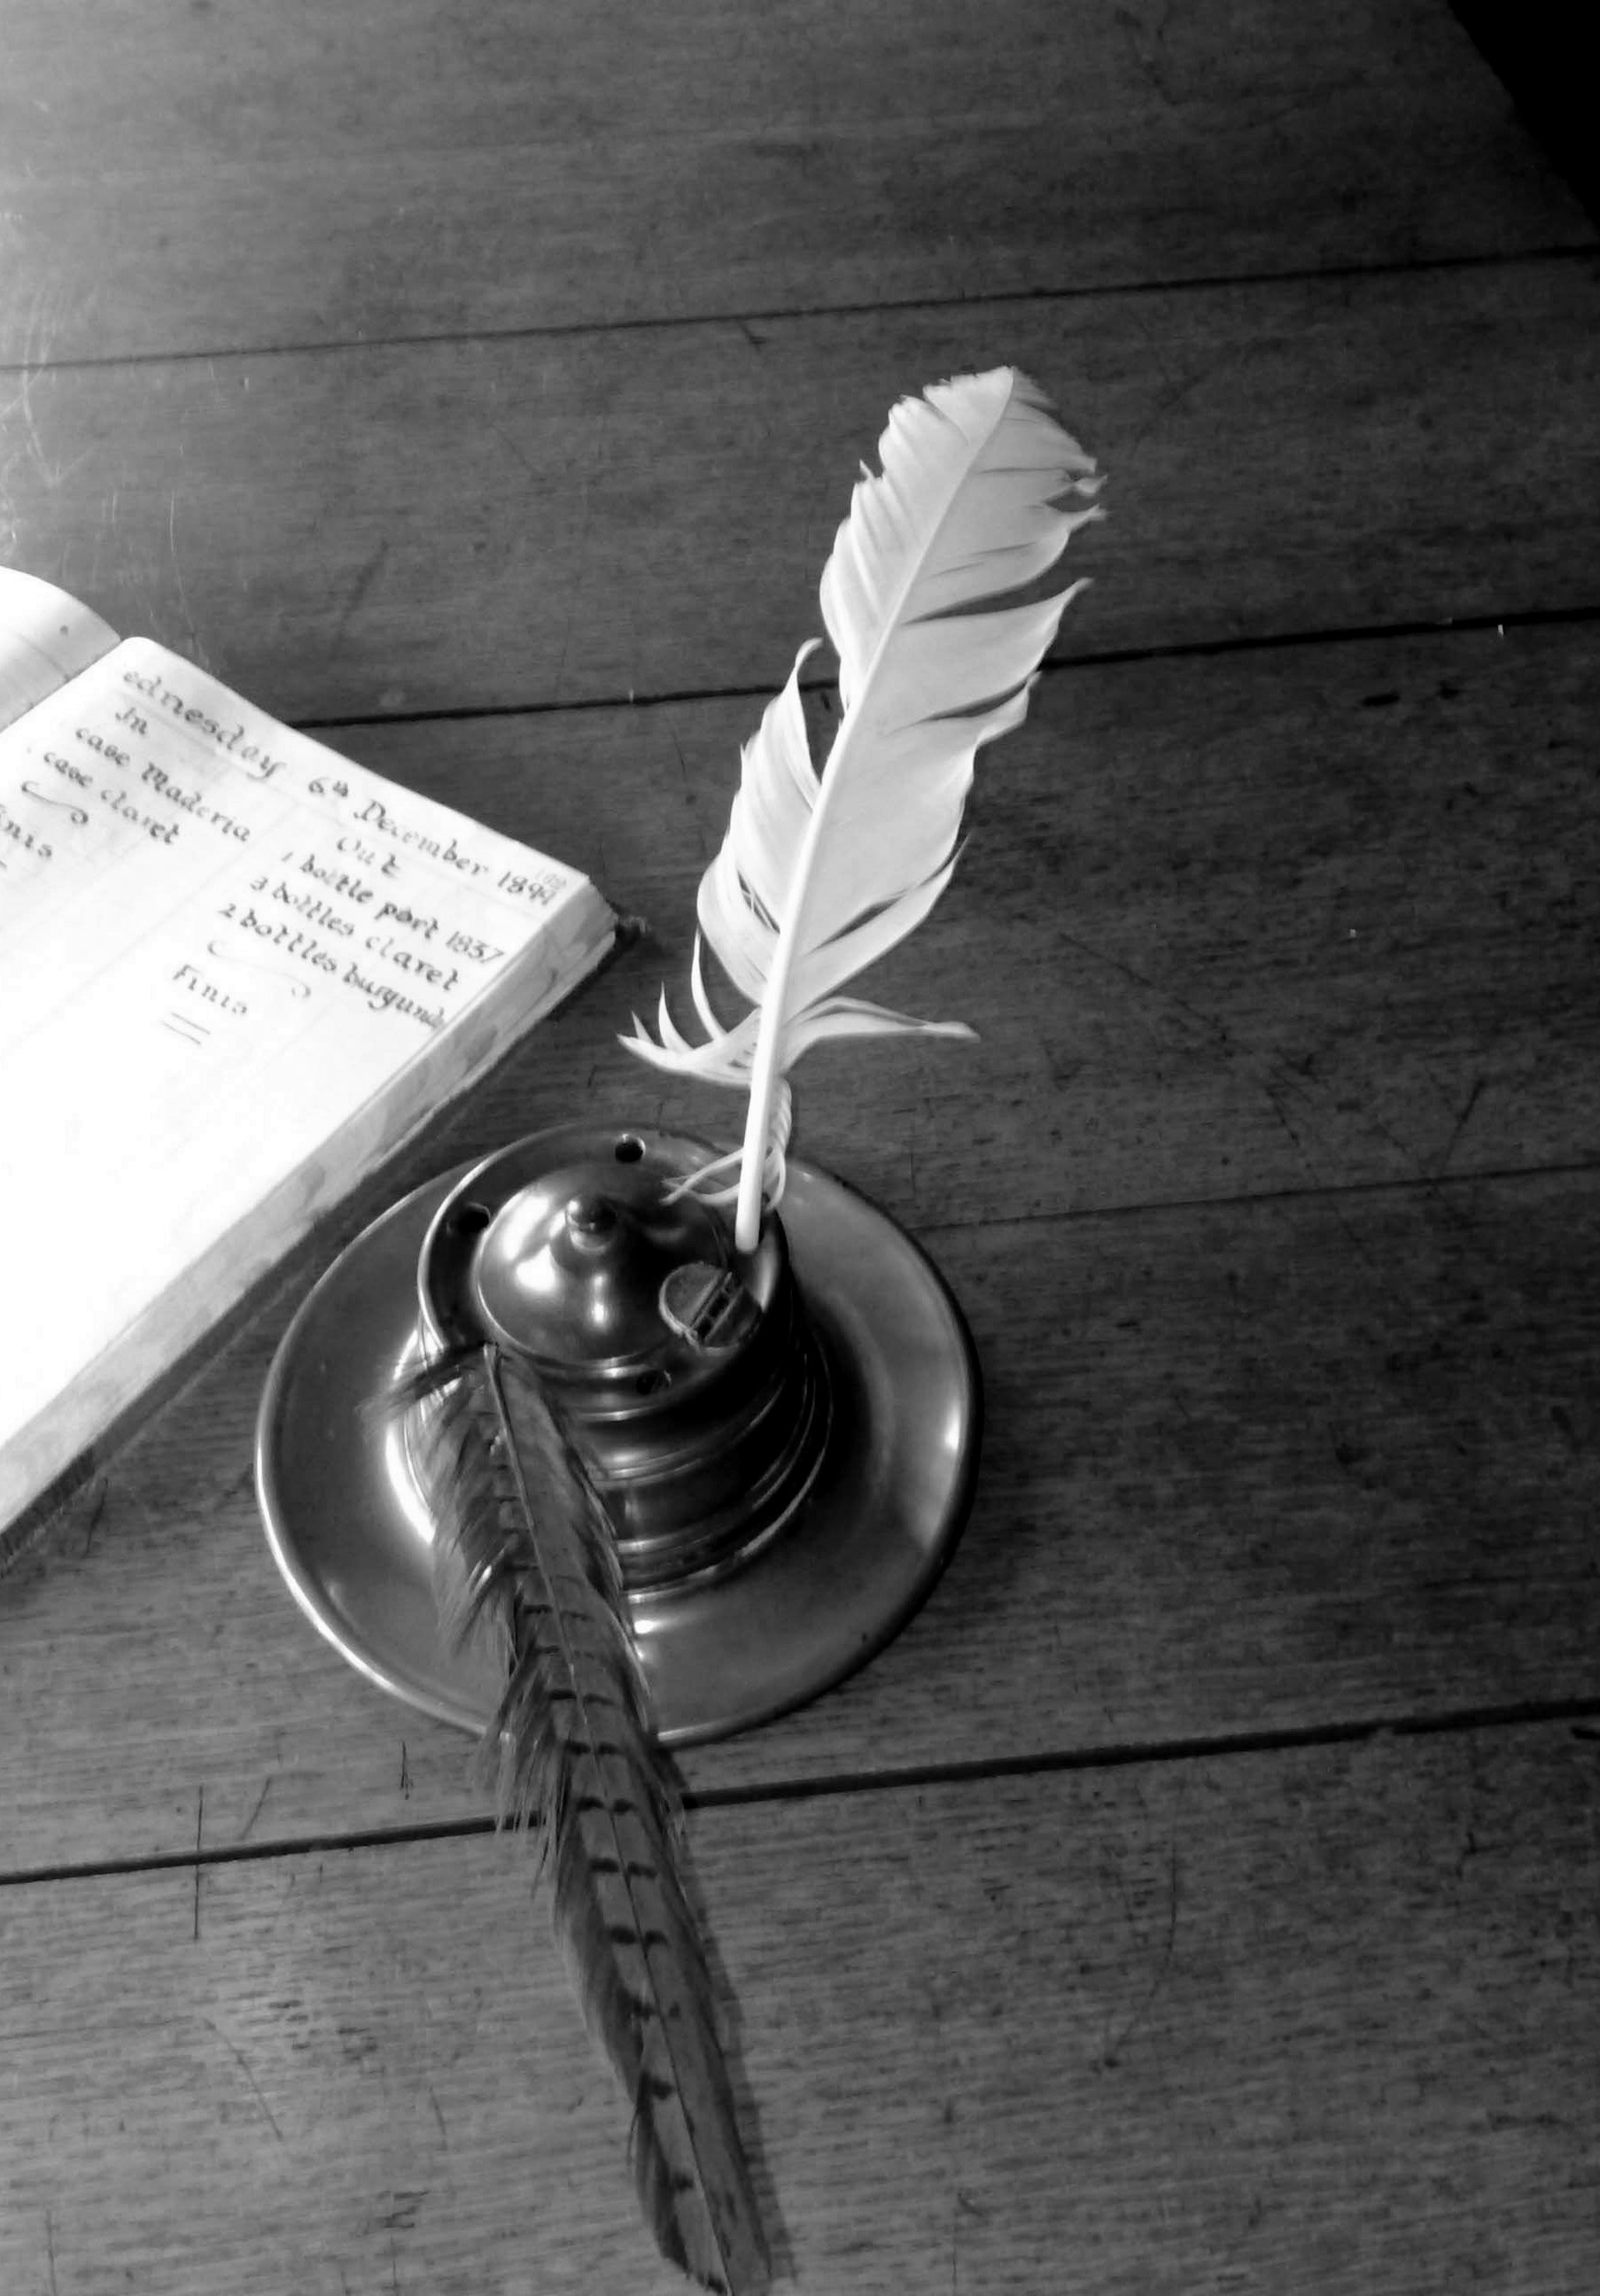 ednesday 6th December 1899
In
case Maderia
case claret
inis
Out
1 bottle port 1837
3 bottles claret
2 bottles burgund
Finis